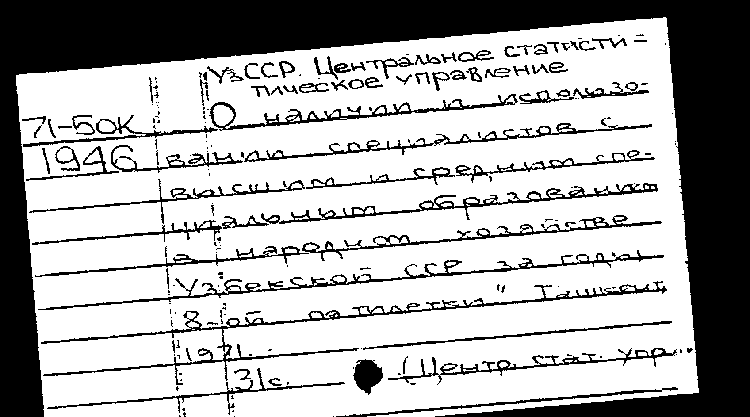 УзССР. Центральное статисти=
тическое управление
71-50К О наличии и использо-
1946 вании специалистов с
высшим и средним спе-
циальным образованием
в народном хозяйстве
Узбекской ССР за годы
8-ой пятилетки" Ташкент,
1971.
31с. (Центр. стат. упр...